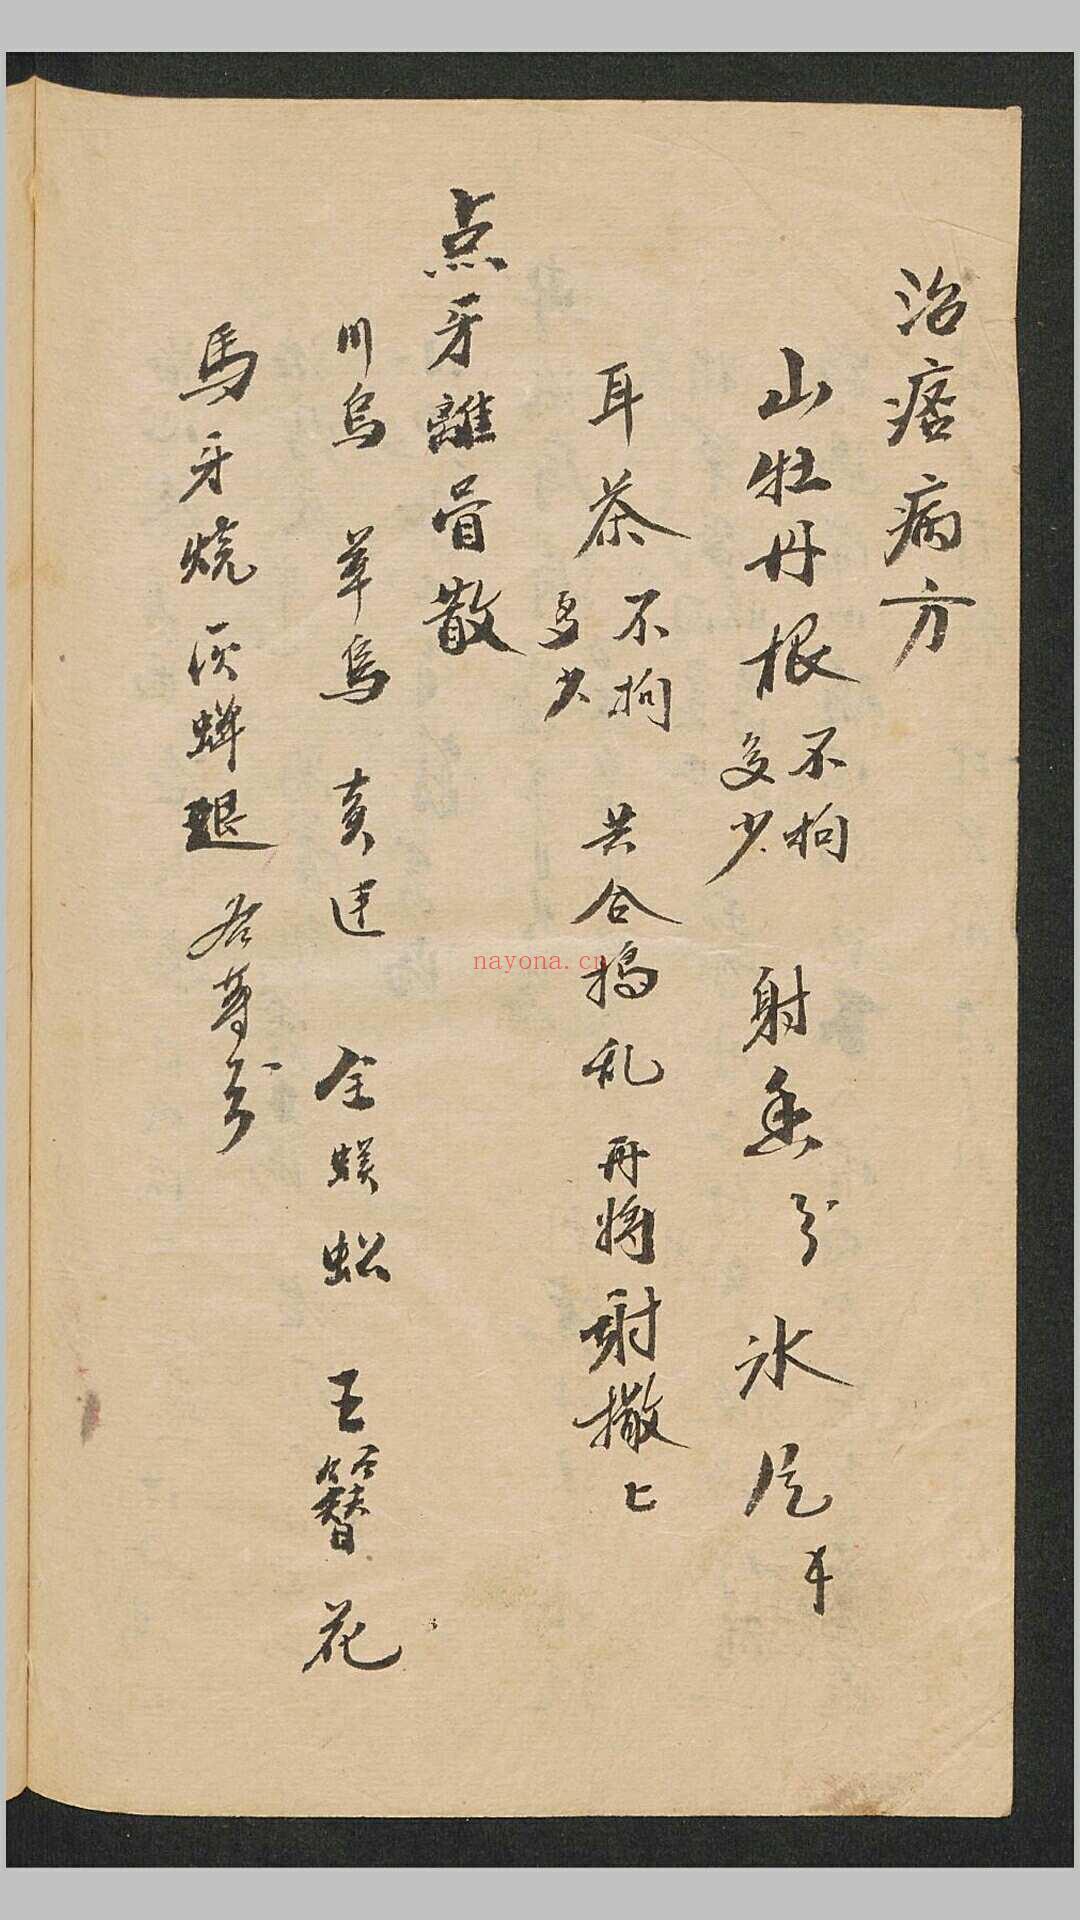 治痞病方
山牡丹根不拘多少 射香 分 冰片 半
耳茶不拘多少 共合搗乱 再將射撒上
点牙離骨散
川烏 草烏 黄連 全蜈蚣 玉簪花
馬牙燒灰蟬退 各等分
nayona.cn